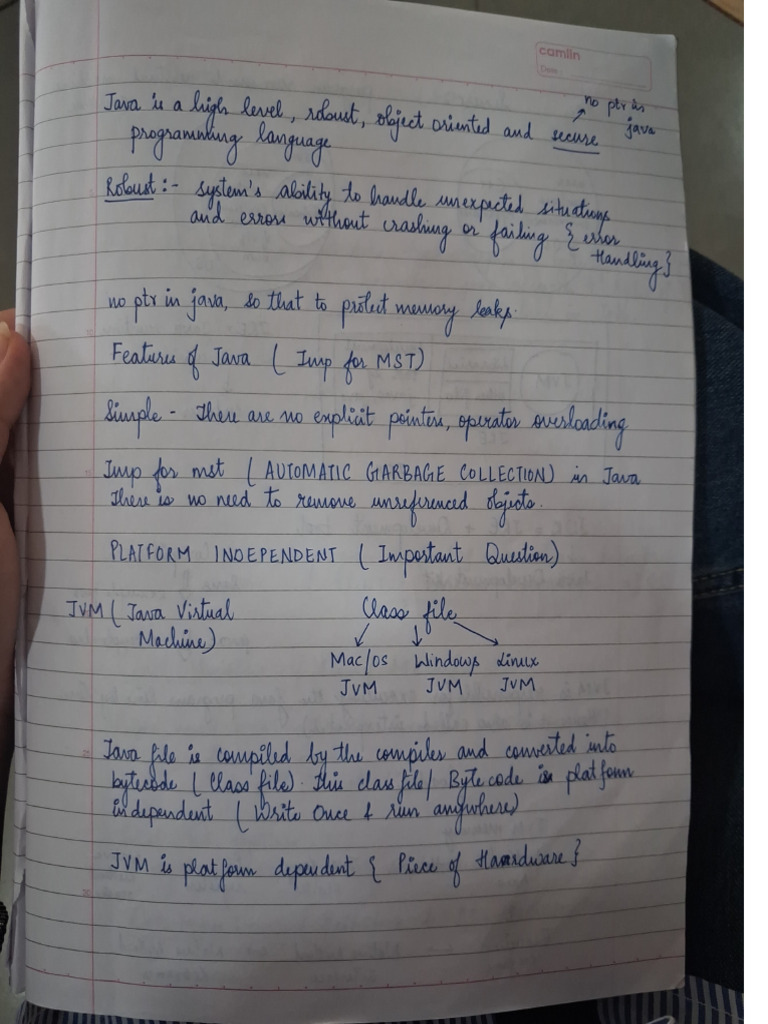 camlin
Date :
no ptr in
java
Java is a high level, robust, object oriented and secure
programming language
Robust :- system's ability to handle unexpected situations
and errors without crashing or failing { error
Handling }
no ptr in java, so that to protect memory leaks.
Features of Java ( Imp for MST)
Simple - There are no explicit pointers, operator overloading
Imp for mst ( AUTOMATIC GARBAGE COLLECTION) in Java
There is no need to remove unreferenced objects.
PLATFORM INDEPENDENT ( Important Question)
JVM ( Java Virtual
Machine)
Class file
Mac/os Windows Linux
JVM JVM JVM
Java file is compiled by the compiler and converted into
bytecode ( Class file). This class file/ Byte code is platform
independent ( Write Once & run anywhere)
JVM is platform dependent { Piece of Hardware }